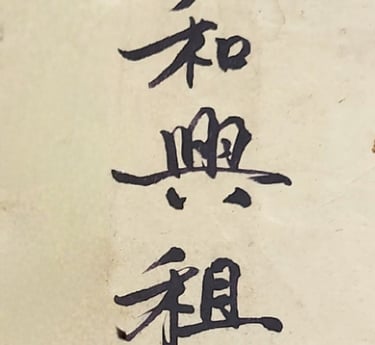 和興租